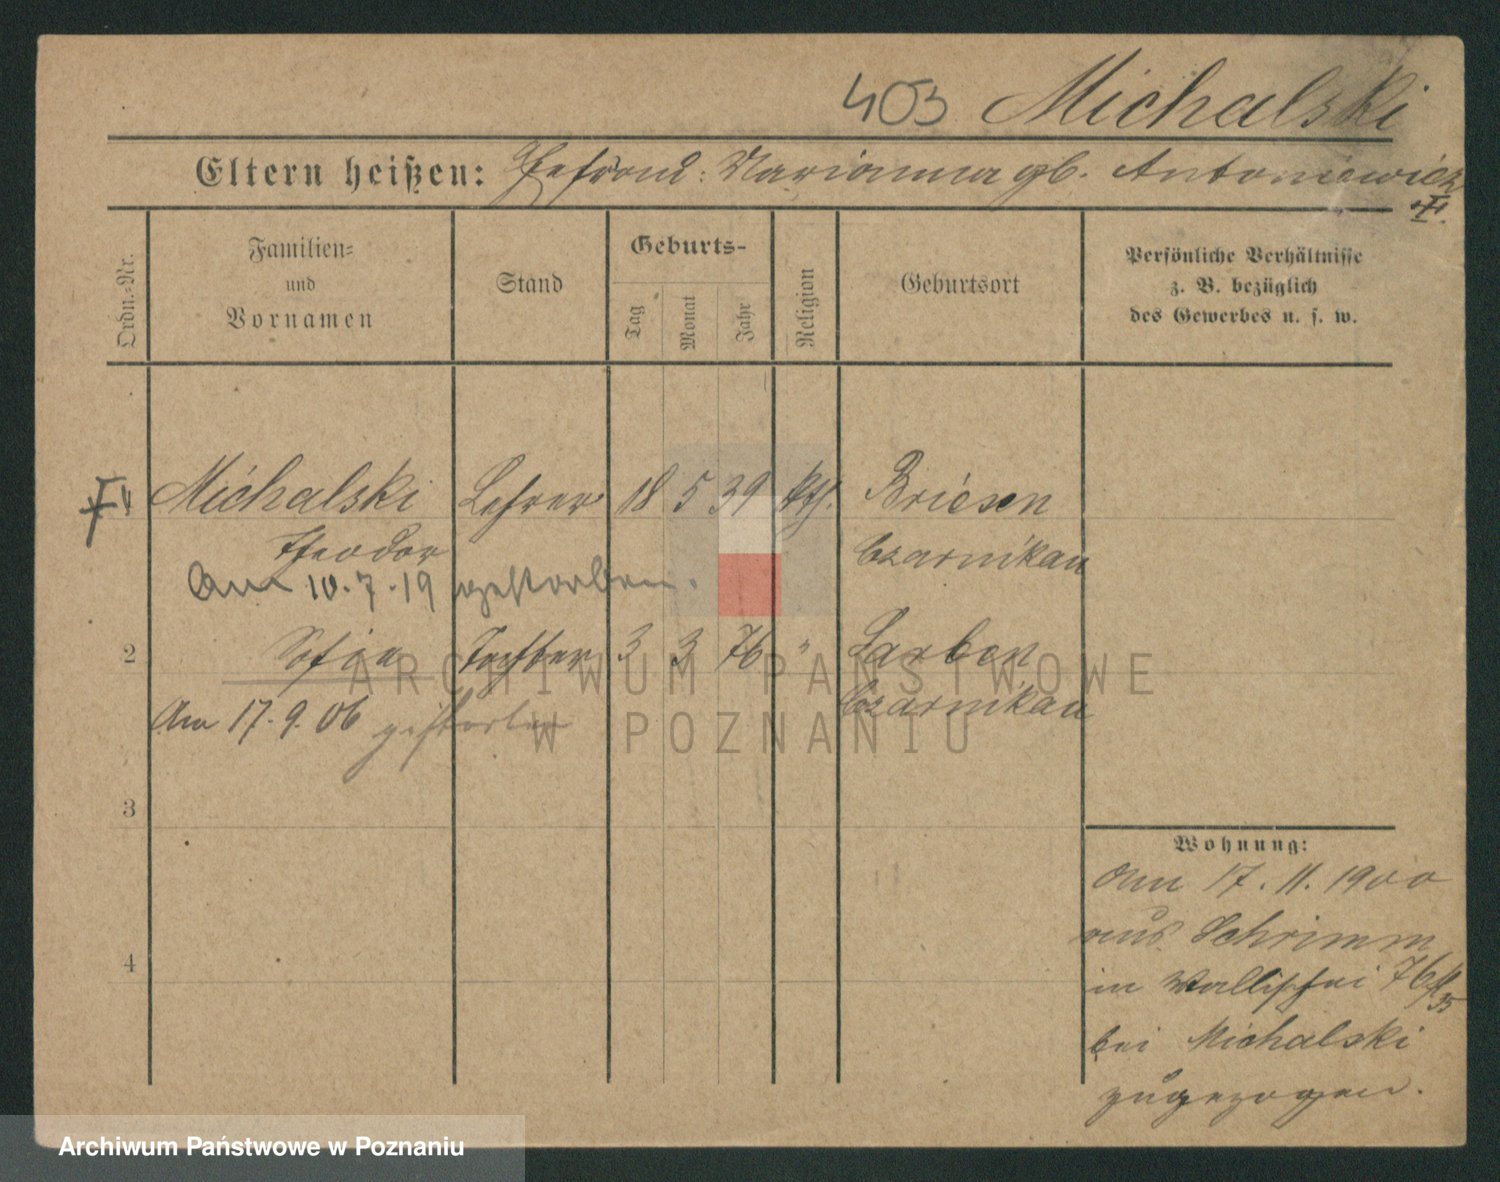 403 Michalski
Eltern heißen: Ehefrau: Marianna gb. Antoniewicz
Ordn.-Nr.
Familien-
und
Vornamen
Stand
Geburts-
Tag
Monat
Jahr
Religion
Geburtsort
Persönliche Verhältnisse
z. B. bezüglich
des Gewerbes u. s. w.
Michalski Lehrer 18 5 39 kth. Briesen
Theodor Czarnikau
Am 10.7.19 gestorben.
2 Sofie Tochter 3 3 76 " Sarben
Czarnikau
Am 17.9.06 gestorben
3
4
Wohnung:
Am 17.11.1900
aus Schrimm
in Wallischei 76
bei Michalski
zugezogen.
ARCHIWUM PAŃSTWOWE
W POZNANIU
Archiwum Państwowe w Poznaniu